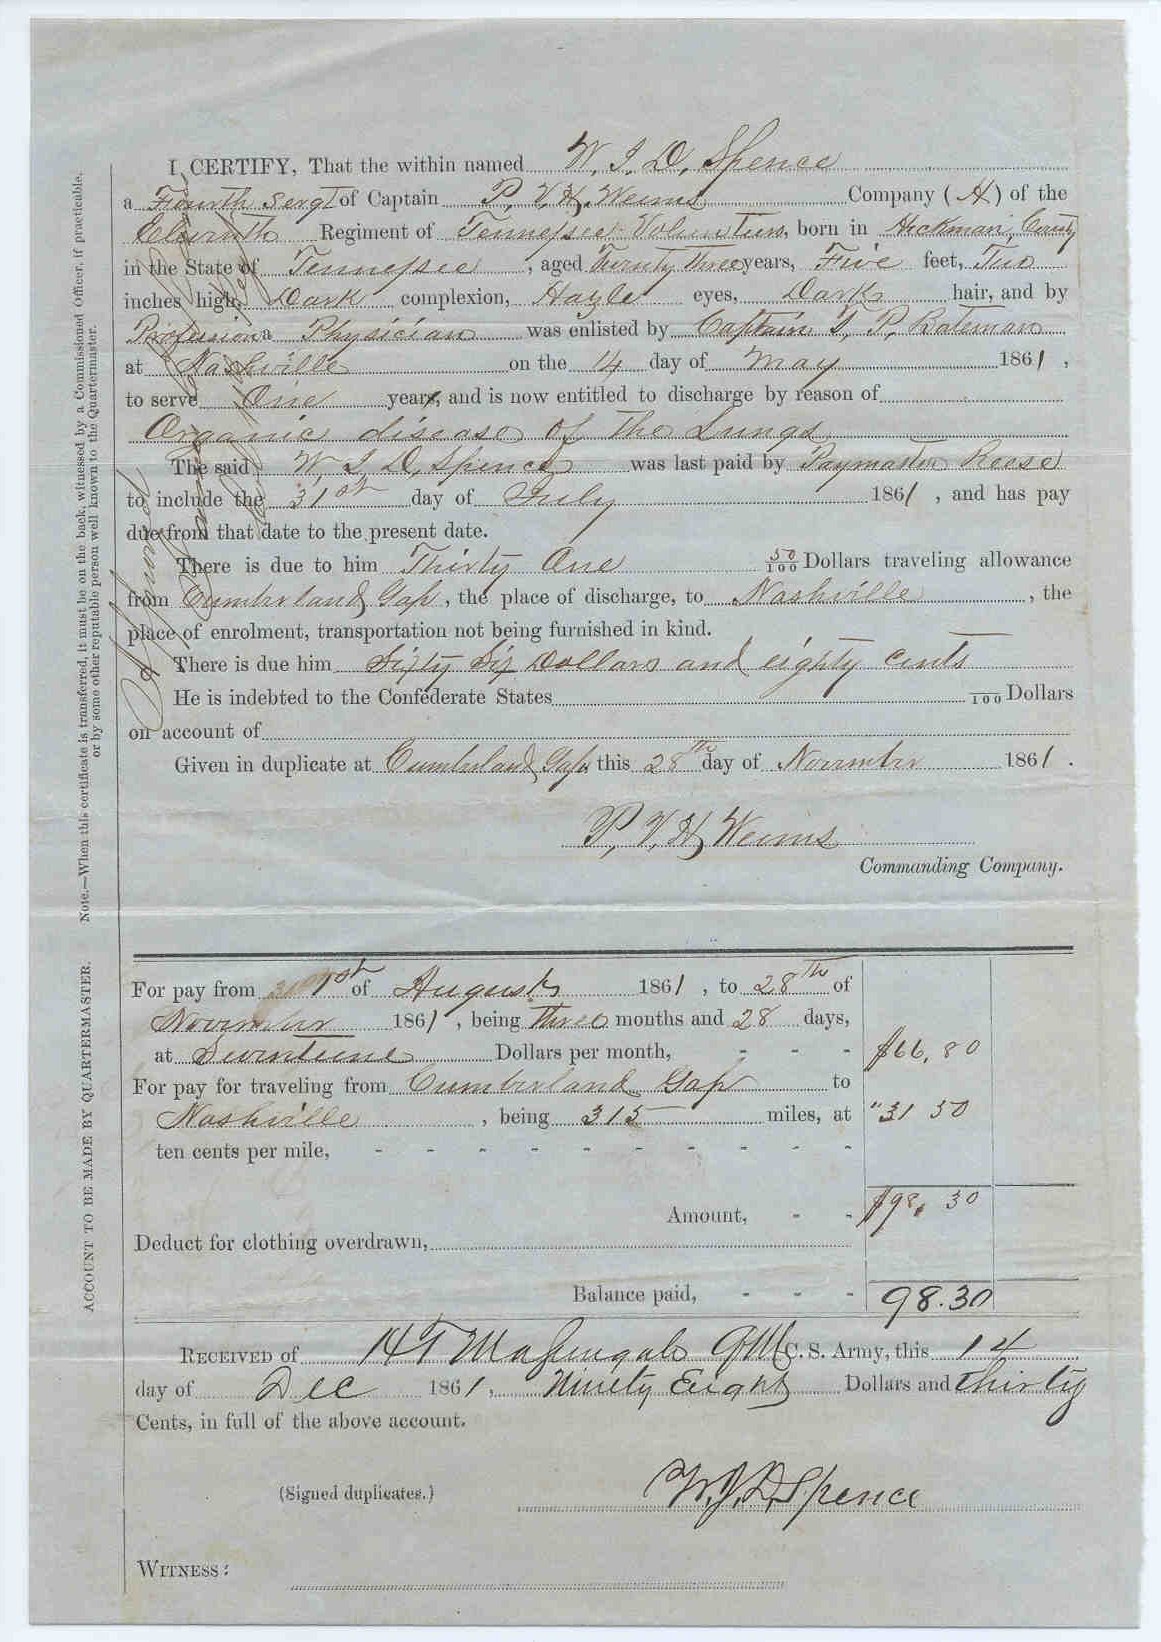 I CERTIFY, That the within named W. J. D. Spence
a Fourth Sergt of Captain P. V. H. Weems Company (H) of the
Eleventh Regiment of Tennessee Volunteers, born in Hickman County
in the State of Tennessee, aged Twenty three years, Five feet, Two
inches high, Dark complexion, Hazle eyes, Dark hair, and by
Profession a Physician was enlisted by Captain T. P. Bateman
at Nashville on the 14 day of May 1861,
to serve One year, and is now entitled to discharge by reason of
Organic disease of the Lungs
The said W. J. D. Spence was last paid by Paymaster Reese
to include the 31st day of July 1861, and has pay
due from that date to the present date.
There is due to him Thirty One 50/100 Dollars traveling allowance
from Cumberland Gap, the place of discharge, to Nashville, the
place of enrolment, transportation not being furnished in kind.
There is due him Sixty Six Dollars and eighty cents
He is indebted to the Confederate States /100 Dollars
on account of
Given in duplicate at Cumberland Gap this 28th day of November 1861.
P. V. H. Weems
Commanding Company.
Approved
Note.—When this certificate is transferred, it must be on the back, witnessed by a Commissioned Officer, if practicable,
or by some other reputable person well known to the Quartermaster.
ACCOUNT TO BE MADE BY QUARTERMASTER.
For pay from 1st of August 1861, to 28th of
November 1861, being three months and 28 days,
at Seventeen Dollars per month, - - - $66,80
For pay for traveling from Cumberland Gap to
Nashville, being 315 miles, at "31 50
ten cents per mile, - - - - - - - - - -
Amount, - - $98,30
Deduct for clothing overdrawn,
Balance paid, - - - 98.30
RECEIVED of Massengale QM C. S. Army, this 14
day of Dec 1861, Ninety Eight Dollars and thirty
Cents, in full of the above account.
(Signed duplicates.) W. J. D. Spence
WITNESS: